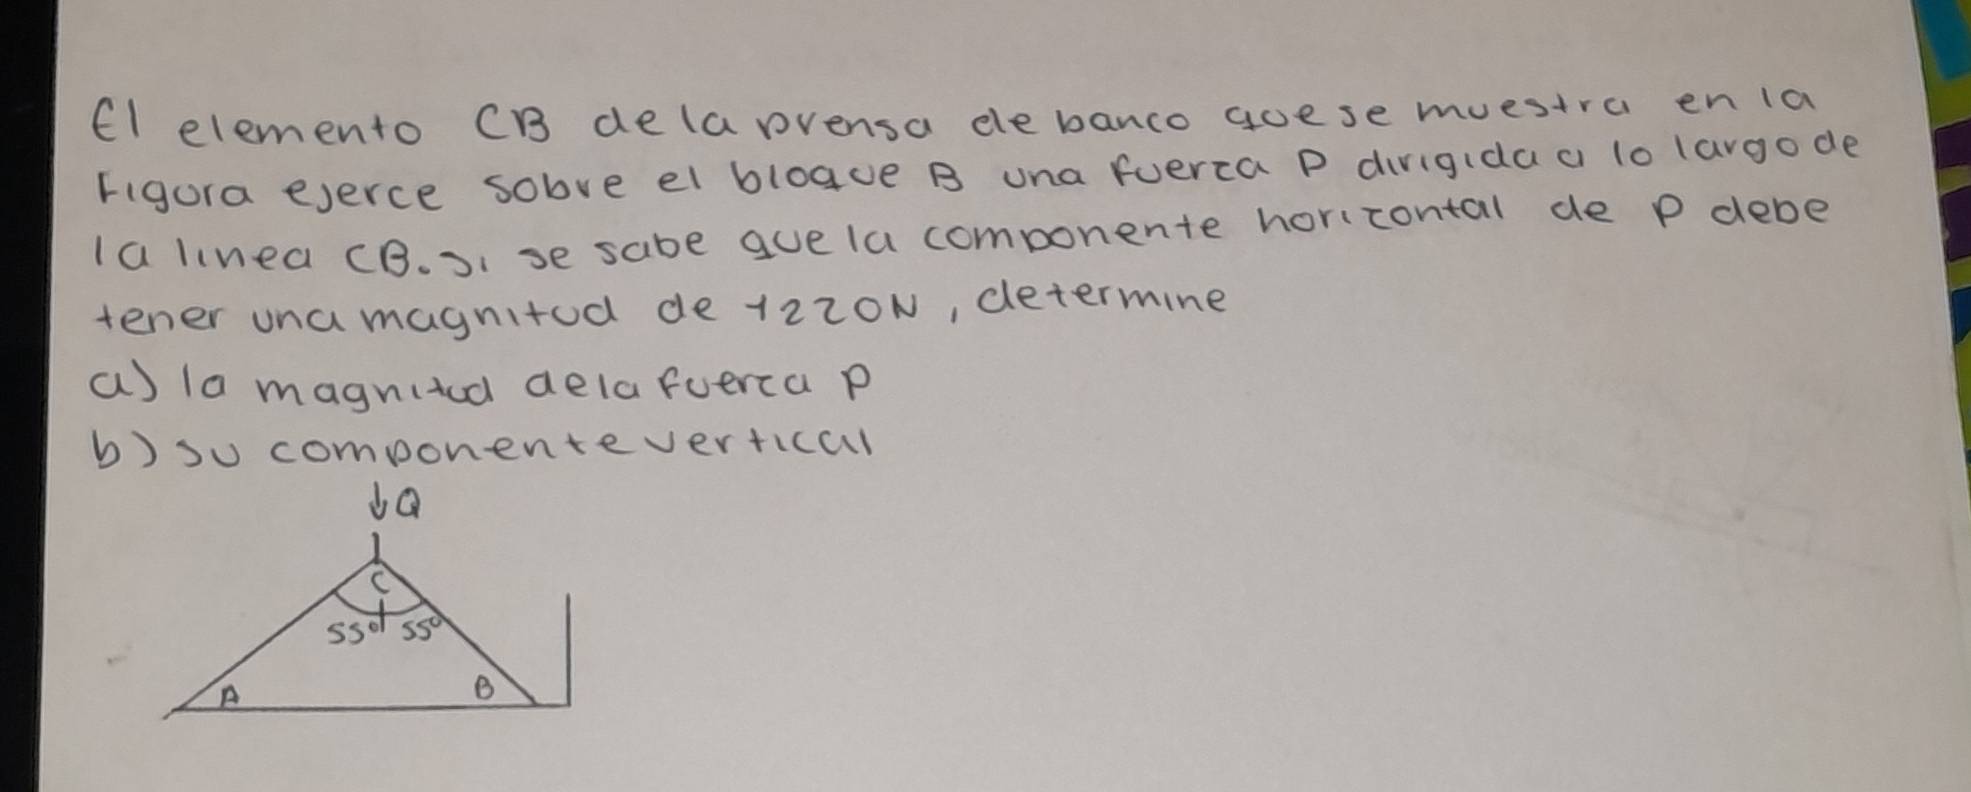 El elemento CB de la prensa de banco que se muestra en la
Figura ejerce sobre el bloque B una fuerza P dirigida a lo largo de
la linea CB. Si se sabe que la componente horizontal de P debe
tener una magnitud de 1220N, determine
a) la magnitud de la fuerza P
b) su componente vertical
↓Q
C
55° 55°
A B